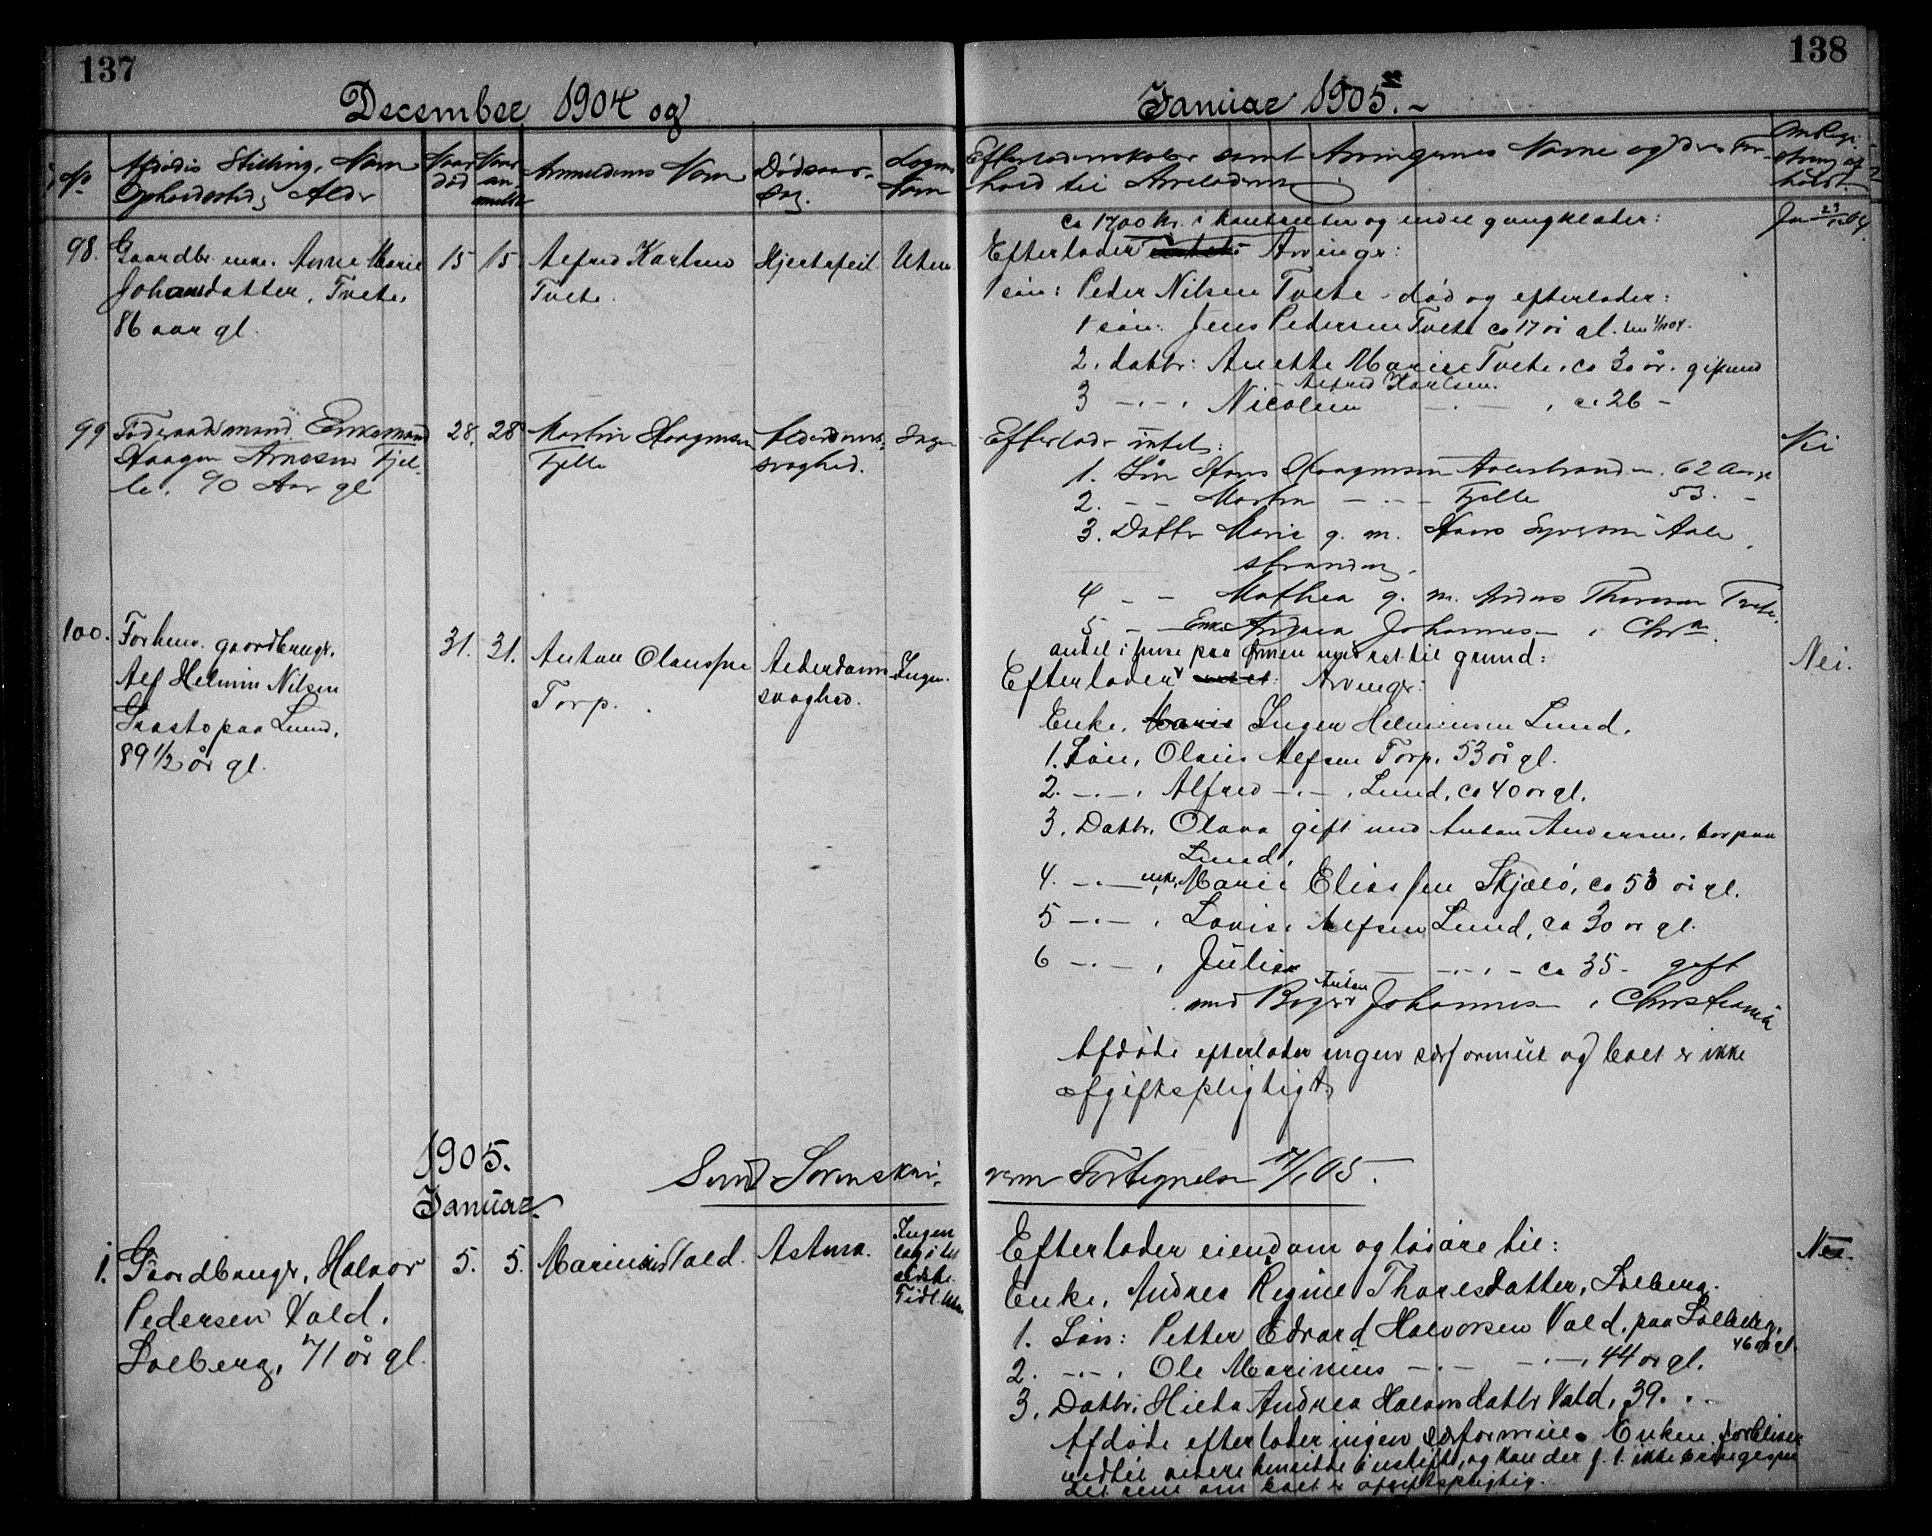 137
138
December 1904 og
Januar 1905.
No
Afdødes Stilling, Navn
Opholdssted, Alder
Naar død
Naar anmeldt
Anmelderens Navn
Dødsaarsag.
Lægens Navn
Efterladenskaber samt Arvingernes Navne og deres Forhold til Arveladeren
98.
Gaardbr. enke. Anne Marie
Johansdatter, Tvete.
86 aar gl.
15
15
Alfred Karlsen
Tvete.
Hjertefeil
Uten
ca 1700 kr. i kontanter og endel gangklæder:
Efterlader Arvinger:
1 søn: Peder Nilsen Tvete død og efterlader:
1 søn: Jens Pedersen Tvete ca 17 år gl.
2. datter: Anette Marie Tvete, ca 30 år. gift med
Alfred Karlsen.
3 -.-, Nicoline -.-, ca 26 -
99
Føderaadsmand Enkemand
Haagen Arnesen Fjelle. 90 Aar gl
28.
28
Martin Haagensen
Fjelle
Alderdomssvaghed.
Ingen
Efterlader intet:
Nei
1. Søn Hans Haagensen Aalestranden. 62 Aar gl
2. - - Martin - - - Fjelle 53. -
3. Datter Marie g. m. Hans Syversen Aalestranden.
4 - - Mathea g. m. Anders Thoresen Tvete.
5 - Enke Andrea Johannesen i Chra.
100.
Forhenv. gaardbruger.
Alf Helmin Nilsen
paa Lund,
89 1/2 år gl.
31.
31.
Anton Olaussen
Torp.
Alderdomssvaghed.
Ingen.
andel i huse paa uden ret til grund:
Efterlader Arvinger:
Nei.
Enke. Inger Helminsen Lund.
1. Søn, Olaus Alfsen Torp. 53 år gl.
2. -.-, Alfred -.-, Lund, ca 40 år gl.
3. Datter, Olava gift med Anton Andersen, bor paa
Lund.
4. -.- enke, Marie Eliassen Skjælø, ca 53 år gl.
5 -.-, Lovise Alfsen Lund, ca 30 år gl.
6 -.-, Julie -.- -.-, - ca 35 - gift
med Anton Johannesen i Christiania
Afdøde efterlader ingen særformue og boet er ikke
afgiftspligtigt.
Sendt Sorenskriveren Fortegnelse 7/1 05.
1905.
Januar.
1.
Gaardbruger, Halvor
Pedersen Vold.
Solberg, 71 år gl.
5.
5.
Marinius Vold.
Astma.
Ingen
læge i det
sidste.
Tidl. Uten
Efterlader eiendom og løsøre til:
Nei.
Enke, Andrea Regine Thoresdatter, Solberg.
1. Søn: Petter Edvard Halvorsen Vold, paa Solberg,
46 år gl.
2. -.-, Ole Marinius -.- -.-, 44 år gl.
3. Datter, Andrea Halvorsdatter Vold, 39. . -
Afdøde efterlader ingen særformue. Enken forbliver
indtil videre hensidde i uskifte, og kan der f. t. ikke bringes paa
det rene om boet er afgiftspligtig.